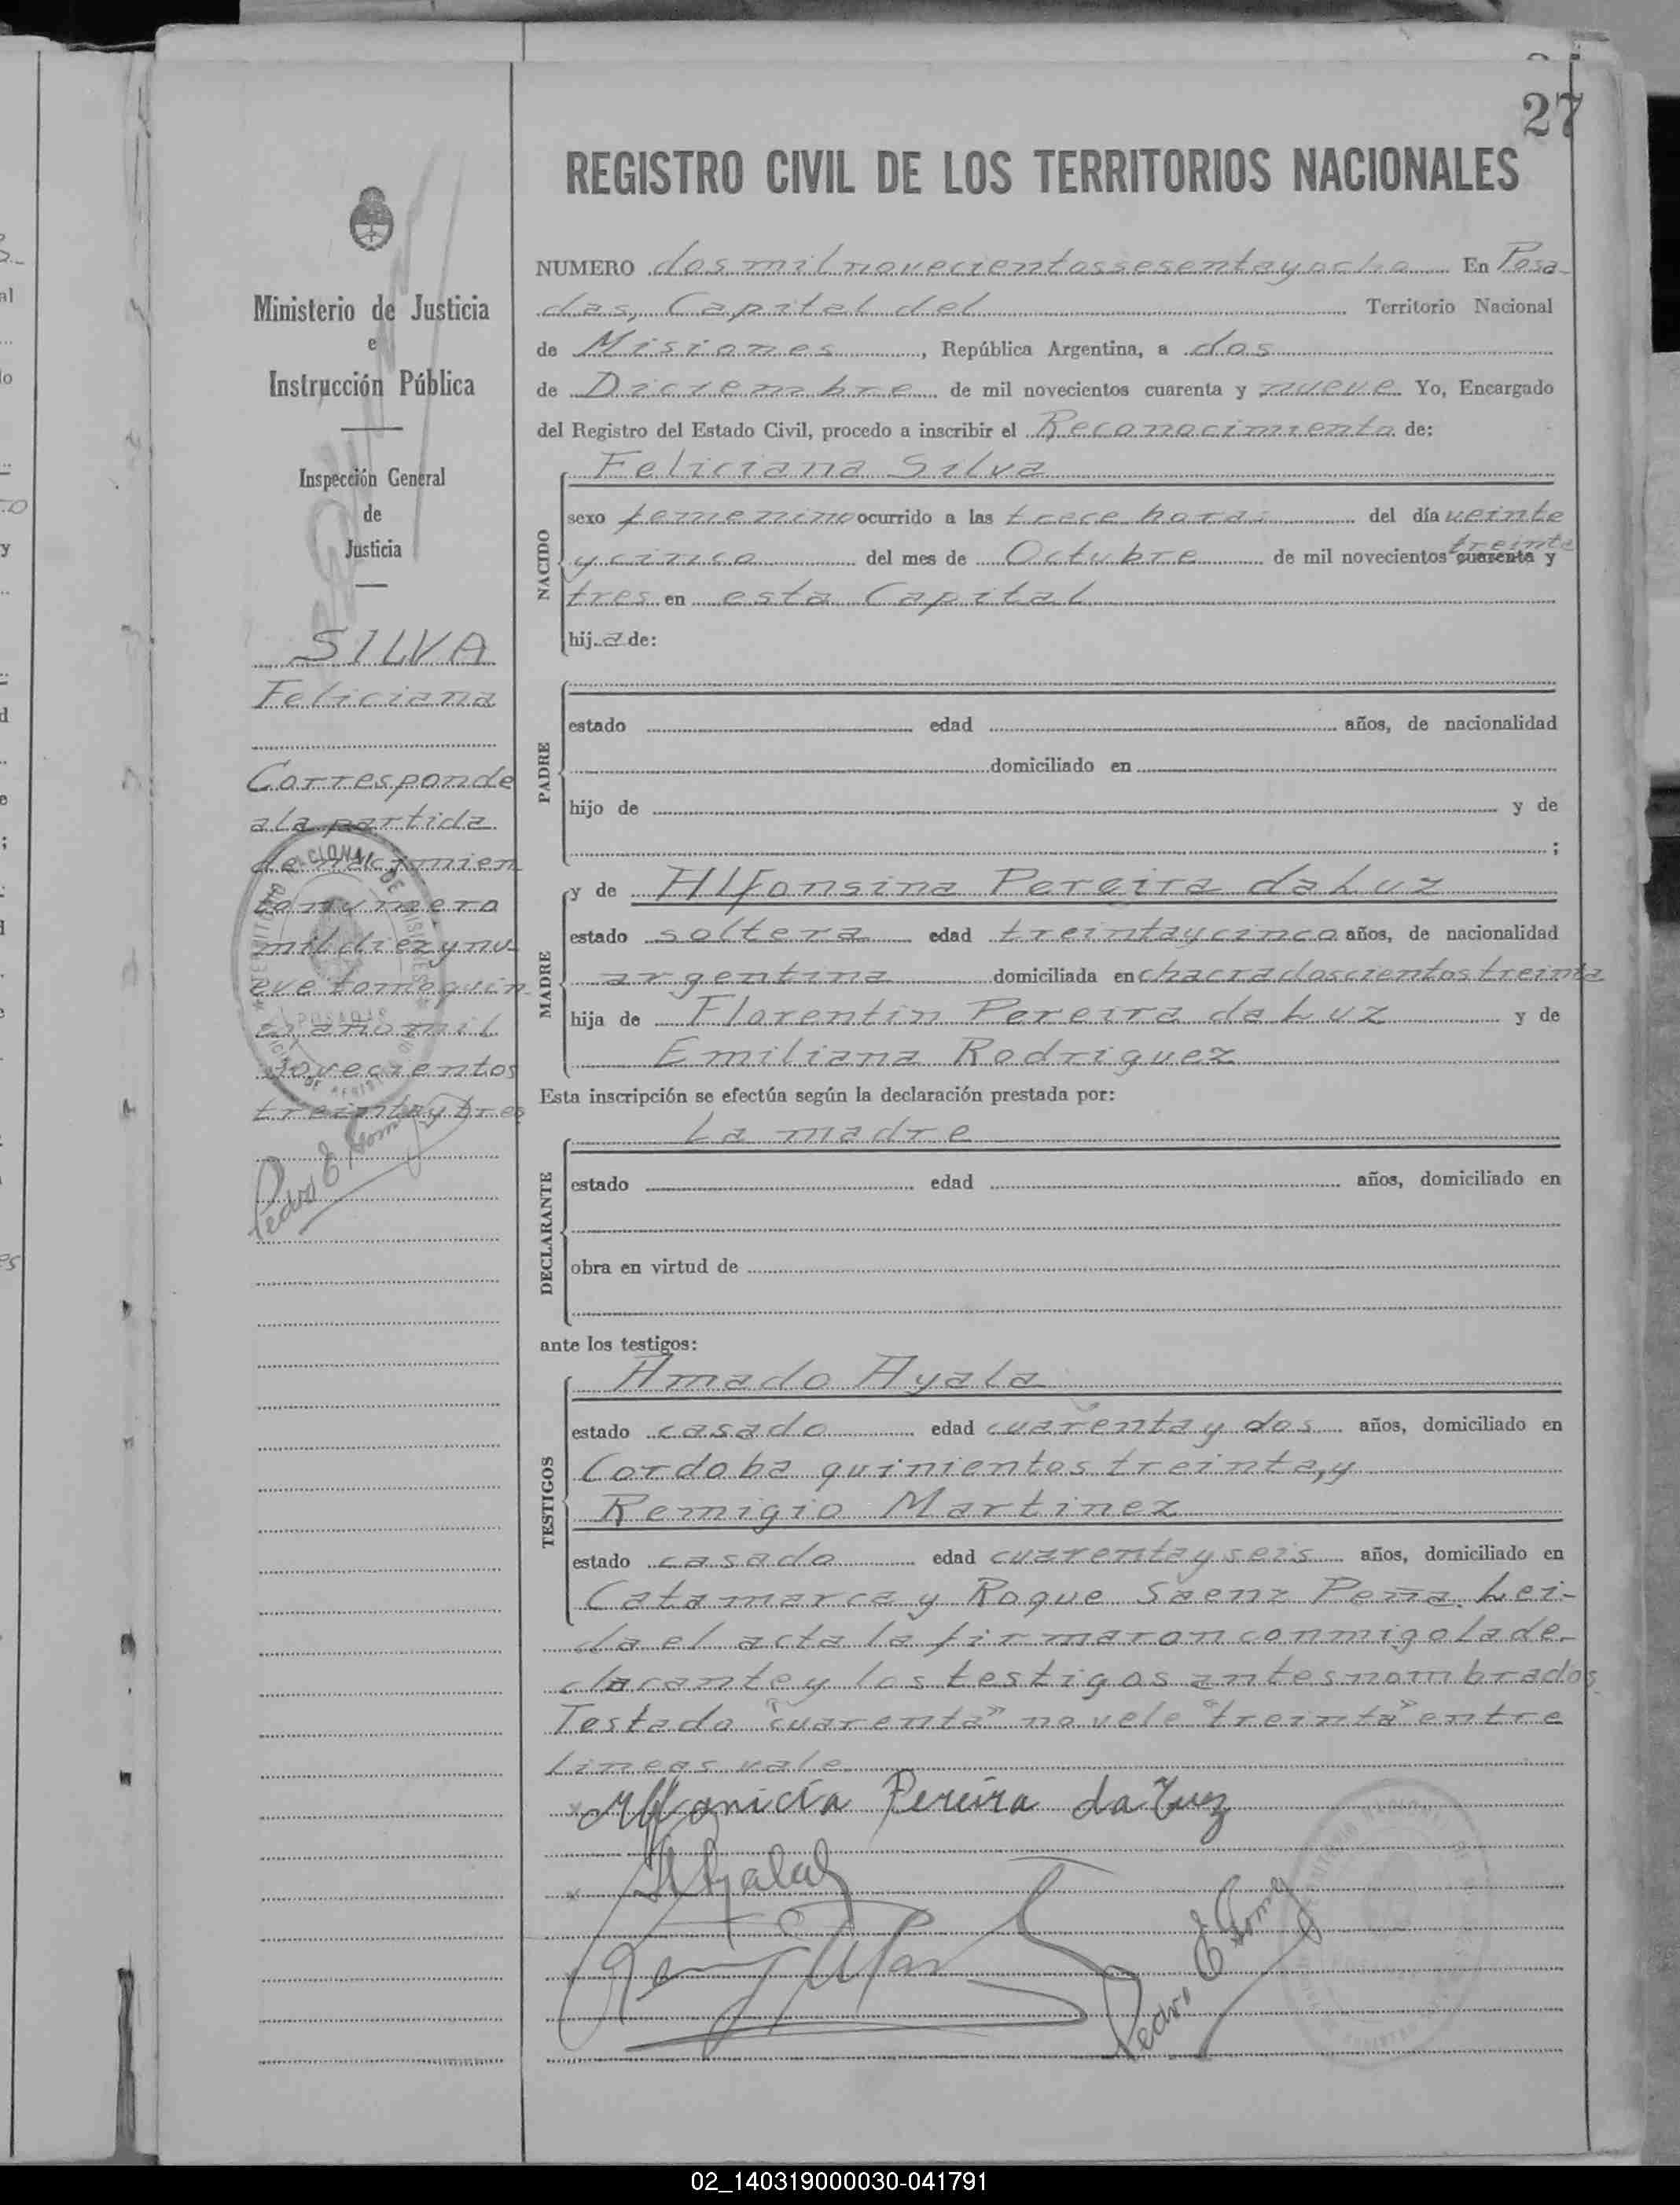 27
REGISTRO CIVIL DE LOS TERRITORIOS NACIONALES
Ministerio de Justicia
e
Instrucción Pública
Inspección General
de
Justicia
SILVA
Feliciana
Corresponde
a la partida
de nacimien
to numero
mil diez y nu-
eve tomo quin
to año mil
novecientos
treinta y tres
NUMERO dos mil novecientos sesenta y ocho En Posa-
das, Capital del Territorio Nacional
de Misiones, República Argentina, a dos
de Diciembre de mil novecientos cuarenta y nueve Yo, Encargado
del Registro del Estado Civil, procedo a inscribir el Reconocimiento de:
NACIDO
Feliciana Silva
sexo femenino ocurrido a las trece horas del día veinte
treinta
y cinco del mes de Octubre de mil novecientos cuarenta y
tres en esta Capital
hija de:
PADRE
estado edad años, de nacionalidad
domiciliado en
hijo de y de
;
MADRE
y de Alfonsina Pereira da Luz
estado soltera edad treinta y cinco años, de nacionalidad
argentina domiciliada en chacra doscientos treinta
hija de Florentin Pereira da Luz y de
Emiliana Rodriguez
Esta inscripción se efectúa según la declaración prestada por:
DECLARANTE
La madre
estado edad años, domiciliado en
obra en virtud de
ante los testigos:
TESTIGOS
Amado Ayala
estado casado edad cuarenta y dos años, domiciliado en
Cordoba quinientos treinta, y
Remigio Martinez
estado casado edad cuarenta y seis años, domiciliado en
Catamarca y Roque Saenz Peña. Lei-
da el acta la firmaron conmigo la de-
clarante y los testigos antes nombrados
Testado "cuarenta" no vele "treinta" entre
lineas vale
Pereira da Luz
Pedro E
Pedro E
02_140319000030-041791